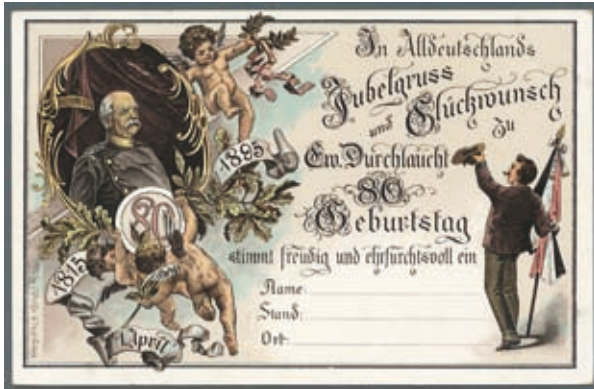 In Alldeutschlands
Jubelgruss
und Glückwunsch
zu
Ew. Durchlaucht
80.
Geburtstag
stimmt freudig und ehrfurchtsvoll ein
Name:
Stand:
Ort:
1895
80
1815
1. April